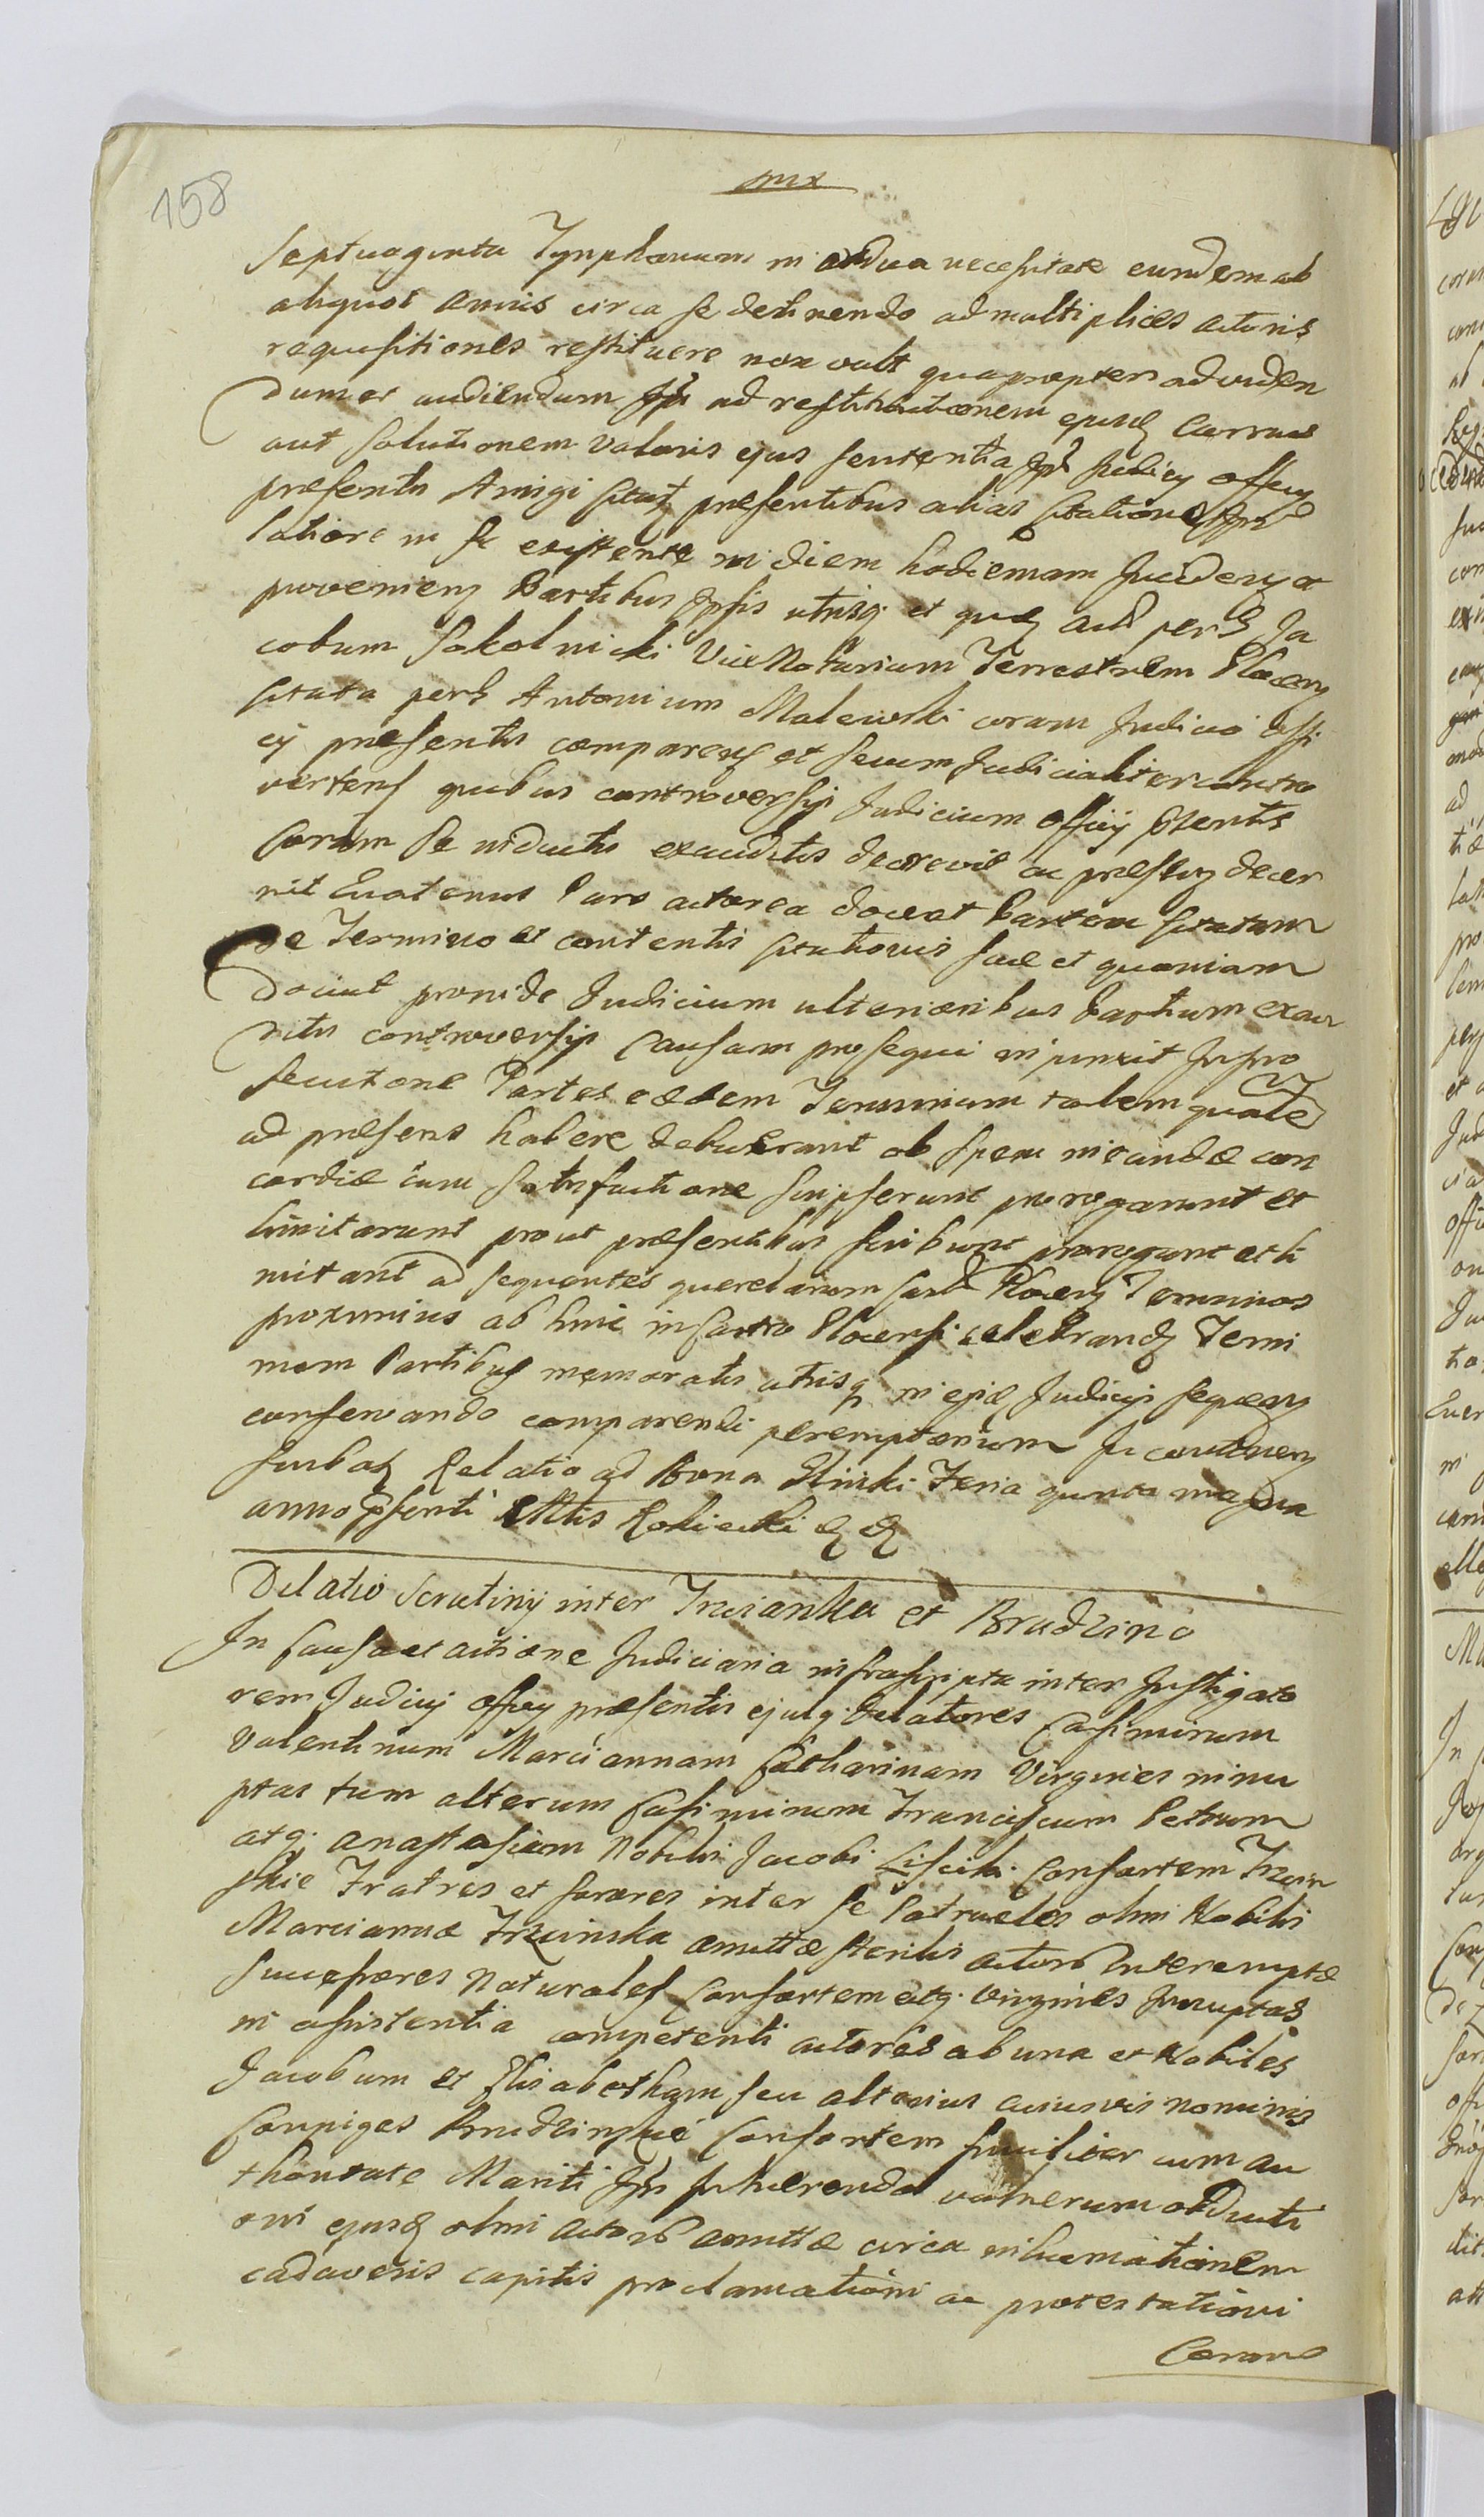 158
Septuaginta Tynphonum in ardua necessitate eundem ab
aliquot annis circa se detinendo ad multiplices actoris
requisitiones restituere non vult quapropter ad viden
dum et audiendum ad restitutionem ejusd Currus
aut solutionem valoris ejus sententia Judicy officy
praesentis Arrigi citat praesentibus alias Citatione
latiore in se existente in diem hodiernam Inciden et
provenien Partibus Ipsis utrisq et quid per G Ja
cobum Sokolnicki Vice Notarium Terrestrem Plocen
Citata per G Antonium Malewski coram Judicio offi
cij praesentis comparen et secum Judicialiter contro
verten quibus controversijs Judicium officij psentis
Coram se inductis exauditis decrevit ac praesen decer
nit Quatenus Pars actorea doceat Partem Citatam
de Termino et contentis Citationis suae et quoniam
docuit proinde Judicium ulterioribus Partium exau
ditis controversijs Causam prosequi injunxit In pro
secutione Partes eaedem Terminum talem quale
ad praesens habere debuerant ob spem ineundae con
cordiae cum satisfactione scripserunt prorogarunt et
limitarunt prout praesentibus scribunt prorogant et li
mitant ad sequentes querelarum Cast Plocen Terminos
proximius ab hinc in Castro Plocensi celebrand Termi
num Partibus memoratis utrisq in ejus Judicij sequen
conservando comparendi peremptorium In continen
Relatio ad Bona Feria quinta magna
anno psenti Mtis Rokicki
Delatio Scrutinij inter Trzcianka et Brudzino
In Causa et actione Judiciaria infrascripta inter Instigato
rem Judicij officy praesentis ejusq Delatores Casimirum
Valentinum Mariannam Catharinam Virgines innu
ptas tum alterum Casimirum Franciscum Petrum
atq. Anastasiam Nobilis Jacobi Consortem Trzcin
skie Fratres et sorores inter se Patrueles olim Nobilis
Mariannae Trzcinska amittae sterilis actorb Interemptae
Successores Naturales Consortem atq. Virgines Innuptas
in assistentia competenti actores ab una et Nobiles
Jacobum et Elisabetham seu alterius cuiusvis nominis
Conniges Brudzinskie Consortem similiter cum au
thoritate Mariti vulnerum obducti
oni ejusd olim actorb amittae circa inhumationem
cadaveris capitis proclamationi ac protestationi
Coram